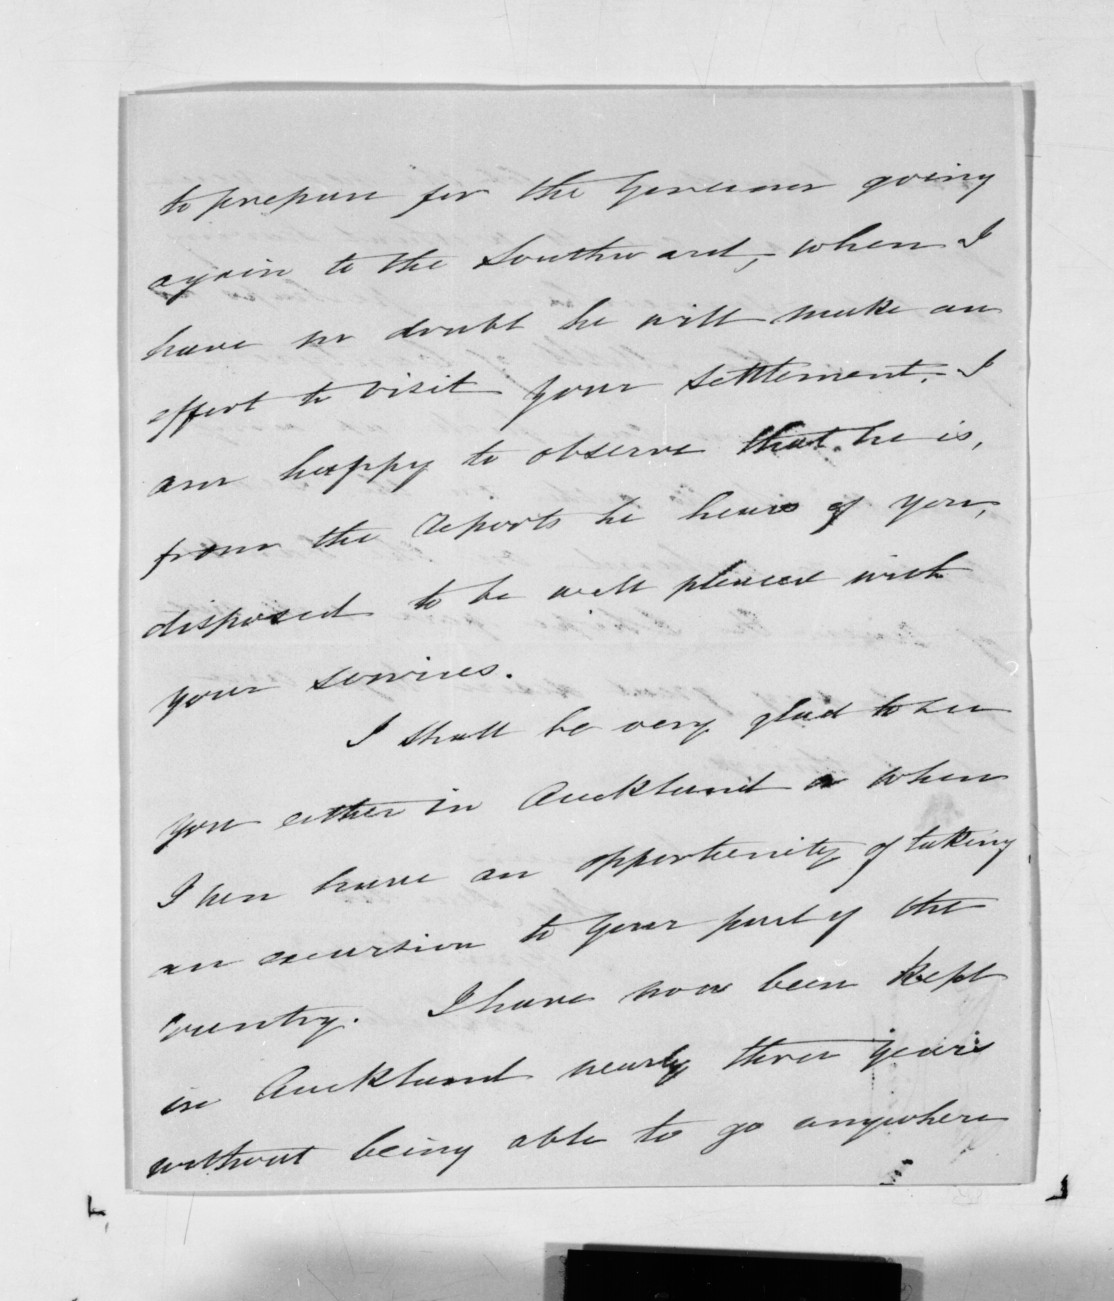 to prepare for the Governor going
again to the Southward, when I
have no doubt he will make an
effort to visit your settlement. I
am happy to observe that he is,
from the reports he hears of you,
disposed to be well pleased with
your services.
I shall be very glad to see
you either in Auckland or when
I can have an opportunity of taking
an excursion to your part of the
country. I have now been kept
in Auckland nearly three years
without being able to go anywhere